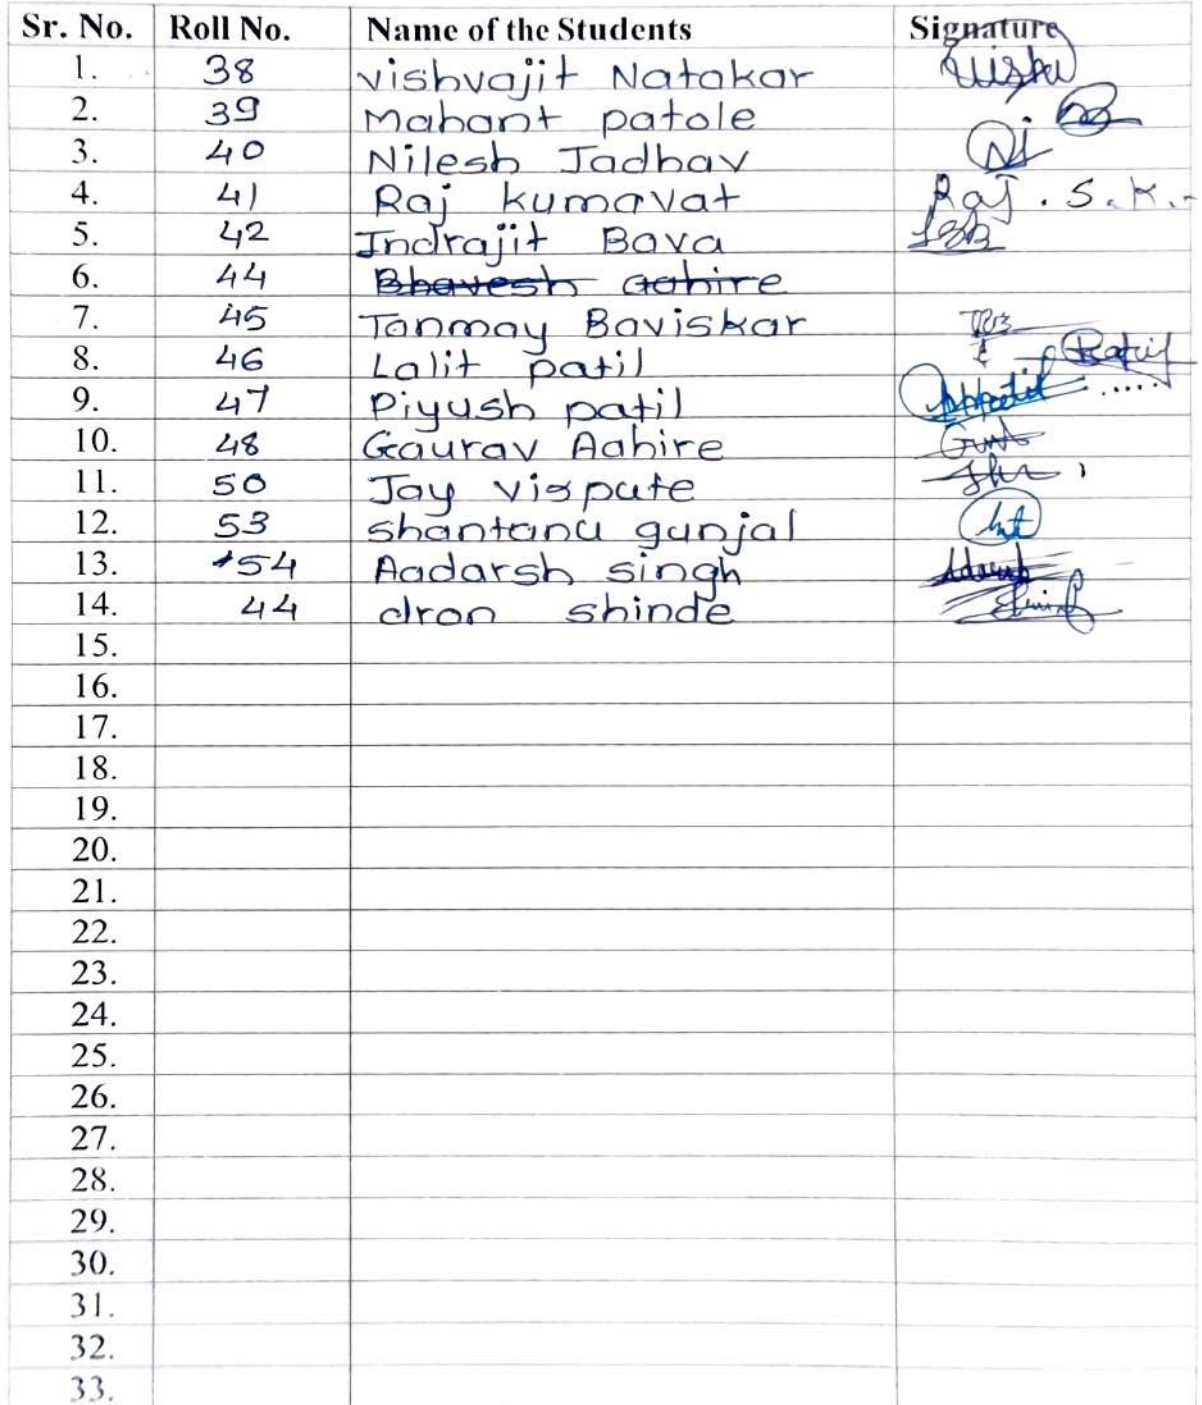 Sr. No. Roll No. Name of the Students Signature
1. 38 vishvajit Natakar
2. 39 Mahant patole
3. 40 Nilesh Jadhav
4. 41 Raj kumavat Raj . S. K.
5. 42 Indrajit Bava
6. 44 Bhavesh Aahire
7. 45 Tanmay Baviskar
8. 46 Lalit patil
9. 47 Piyush patil
10. 48 Gaurav Aahire
11. 50 Jay vispute
12. 53 shantanu gunjal
13. 54 Aadarsh singh
14. 44 dron shinde
15.
16.
17.
18.
19.
20.
21.
22.
23.
24.
25.
26.
27.
28.
29.
30.
31.
32.
33.